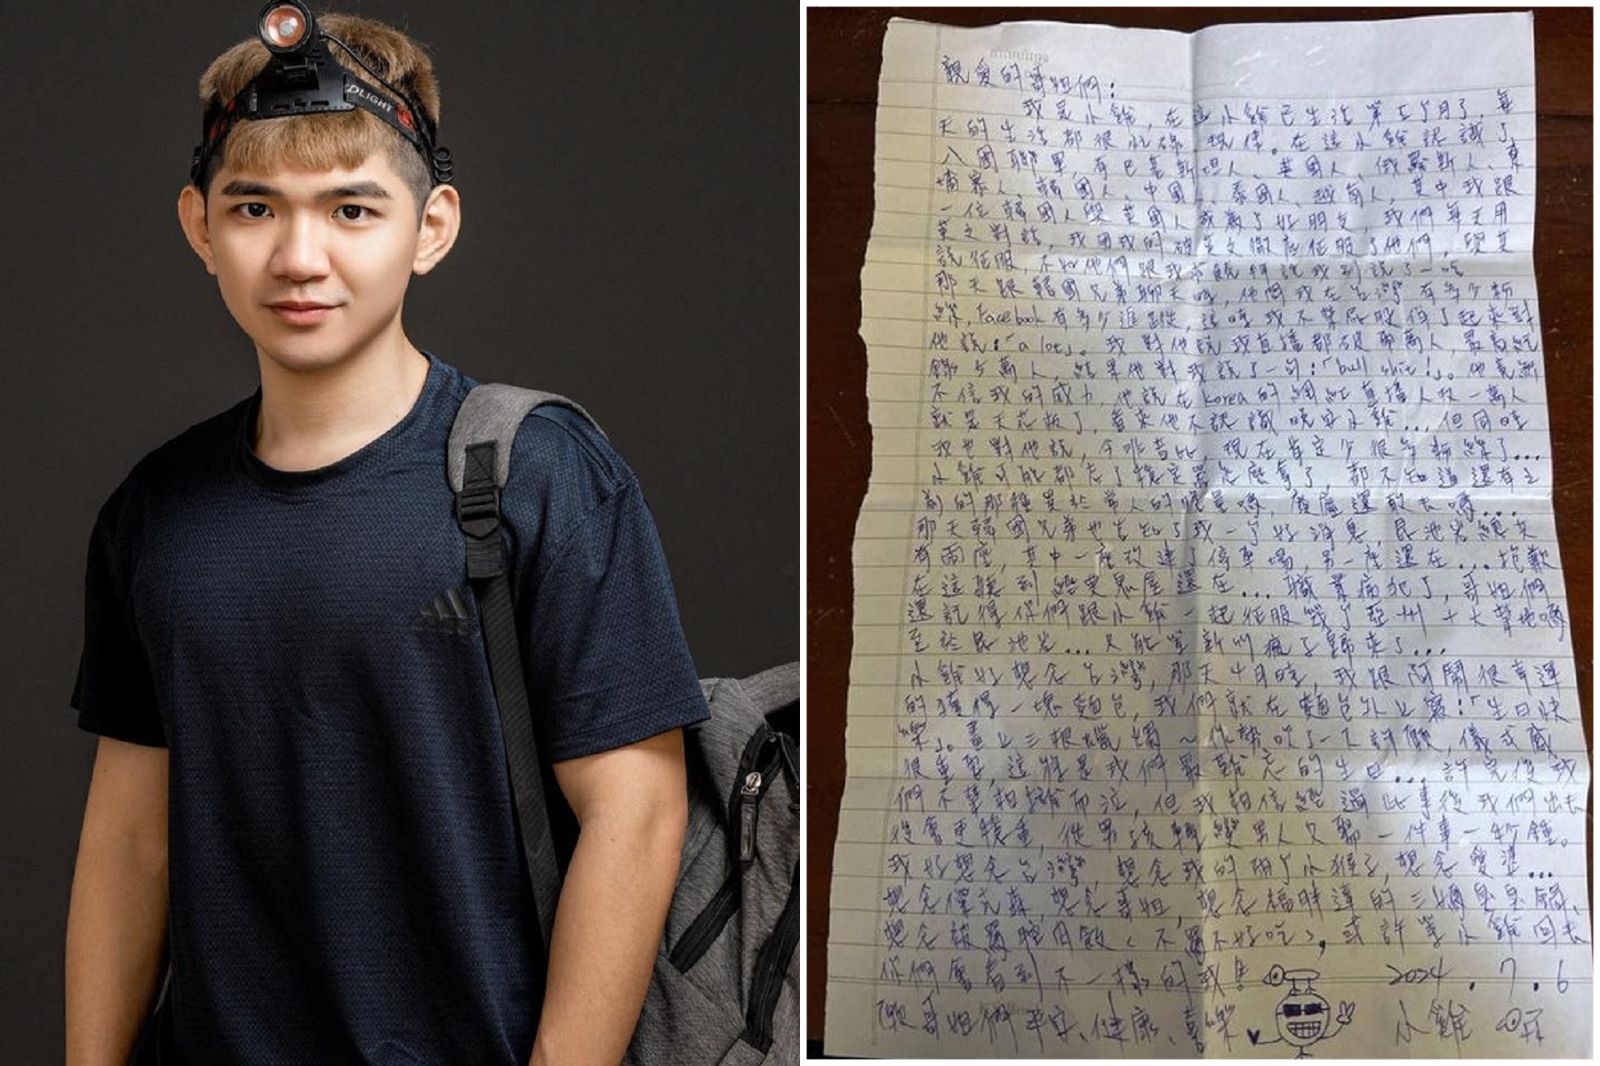 DLIGHT
親愛的哥姐們：
我是小雞，在這小雞已生活第5個月了，每
天的生活都很規律。在這小雞認識了
八國聯軍，有巴基斯坦人、英國人、俄羅斯人、柬
埔寨人、韓國人、中國人、泰國人、越南人，其中我跟
一位韓國人與英國人成為了好朋友，我們每天用
英文對話，我用我的破英文徹底征服了他們，與其
說征服，不如他們跟我
那天跟韓國兄弟聊天時，他問我在台灣有多少粉
絲，Facebook有多少追蹤，這時我不禁屁股俏了起來對
他說：「a lot」。我對他說我直播都破萬人，最高紀
錄5萬人，結果他對我說了一句：「bull shit!」。他竟然
不信我的威力，他說在Korea的網紅直播人數一萬人
就是天花板了，看來他不認識晚安小雞...但同時
我也對他說，今非昔比，現在肯定少很多粉絲了...
小雞可能都忘了穩定器怎麼拿了，都不知道還有之
前的那種異於常人的膽量嗎，廢墟還敢去嗎...
那天韓國兄弟也告訴了我一個好消息，昆池岩總共
有兩座，其中一座改建了停車場，另一座還在...抱歉
在這聽到鬼屋還在...職業病犯了，哥姐們
還記得你們跟小雞一起征服幾個亞洲十大聲地嗎
至於昆池岩...只能等瘋子歸來了...
小雞好想念台灣，那天4月時，我跟阿鬧很幸運
的獲得一塊麵包，我們就在麵包外上寫：「生日快
樂」。畫上三根蠟燭～作勢吹了一下許願，儀式感
很重要，這將是我們最難忘的生日...許完後我
們不禁相擁而泣，但我相信經過此事後我們出去
後會更穩重，從男孩轉變男人只需一件事一秒鐘。
我好想念台灣，想念我的兩個小猴子，想念愛溼...
想念傑克森，想念哥姐，想念福胖達的三媽臭臭鍋、
想念被關控肉飯（不過不好吃），或許等小雞回去
你們會看到不一樣的我！ 2024.7.6
敬哥姐們平安、健康、喜樂 小雞